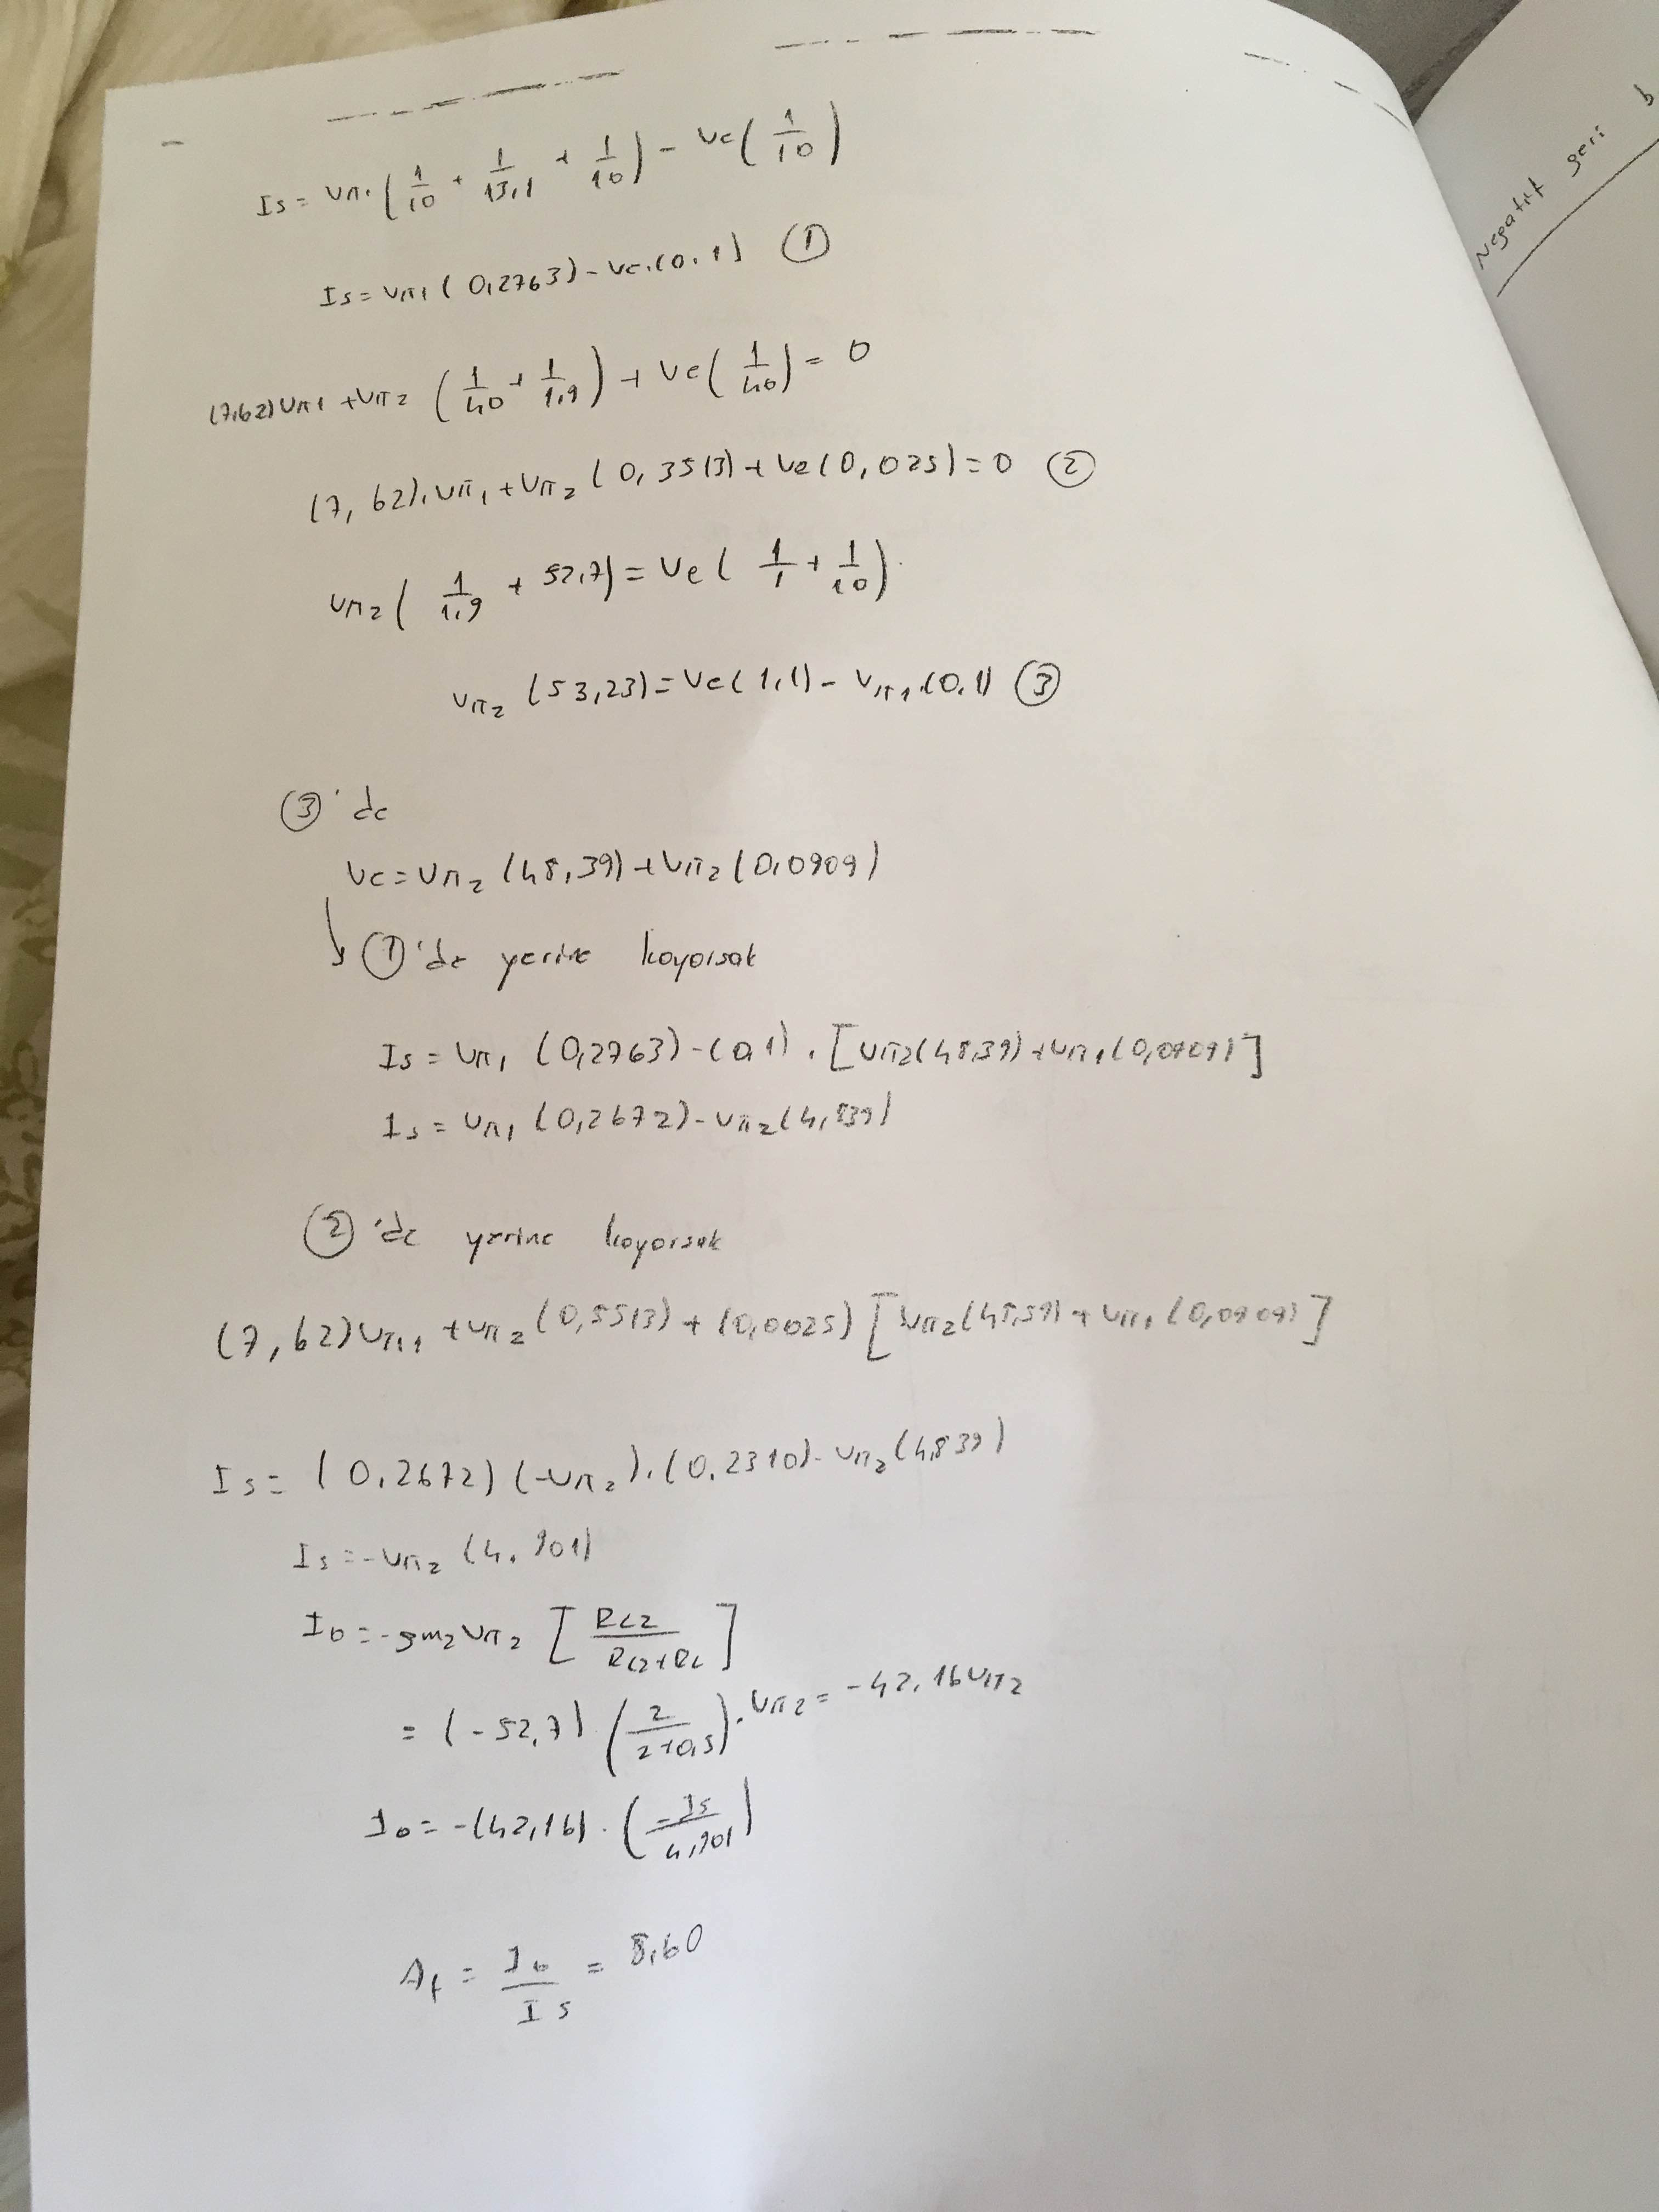 Is = Vπ1 ( 1/10 + 1/13,1 + 1/10 ) - Ve ( 1/10 )
Is = Vπ1 ( 0,2763 ) - Ve. (0,1) ①
(7,62) Vπ1 + Vπ2 ( 1/40 + 1/1,9 ) + Ve ( 1/40 ) = 0
(7,62). Vπ1 + Vπ2 ( 0,3513 ) + Ve ( 0,025 ) = 0 ②
Vπ2 ( 1/1,9 + 52,7 ) = Ve ( 1/1 + 1/10 ).
Vπ2 (53,23) = Ve ( 1,1 ) - Vπ1. (0,1) ③
③ 'de
Ve = Vπ2 (48,39) + Vπ2 ( 0,0909 )
① 'de yerine koyarsak
Is = Vπ1 (0,2763) - (0,1) . [ Vπ2 (48,39) + Vπ1 (0,0909) ]
Is = Vπ1 (0,2672) - Vπ2 (4,839)
② 'de yerine koyarsak
(7,62) Vπ1 + Vπ2 (0,5513) + (0,0025) [ Vπ2 (48,39) + Vπ1 (0,0909) ]
Is = (0,2672) (-Vπ2). (0,2310) - Vπ2 (4,839)
Is = -Vπ2 (4,901)
Io = -gm2 Vπ2 [ RC2 / RC2+RL ]
= (-52,7) ( 2 / 2+0,5 ) . Vπ2 = -42,16 Vπ2
Io = -(42,16) . ( -Is / 4,901 )
Af = Io / Is = 8,60
Negatif geri b